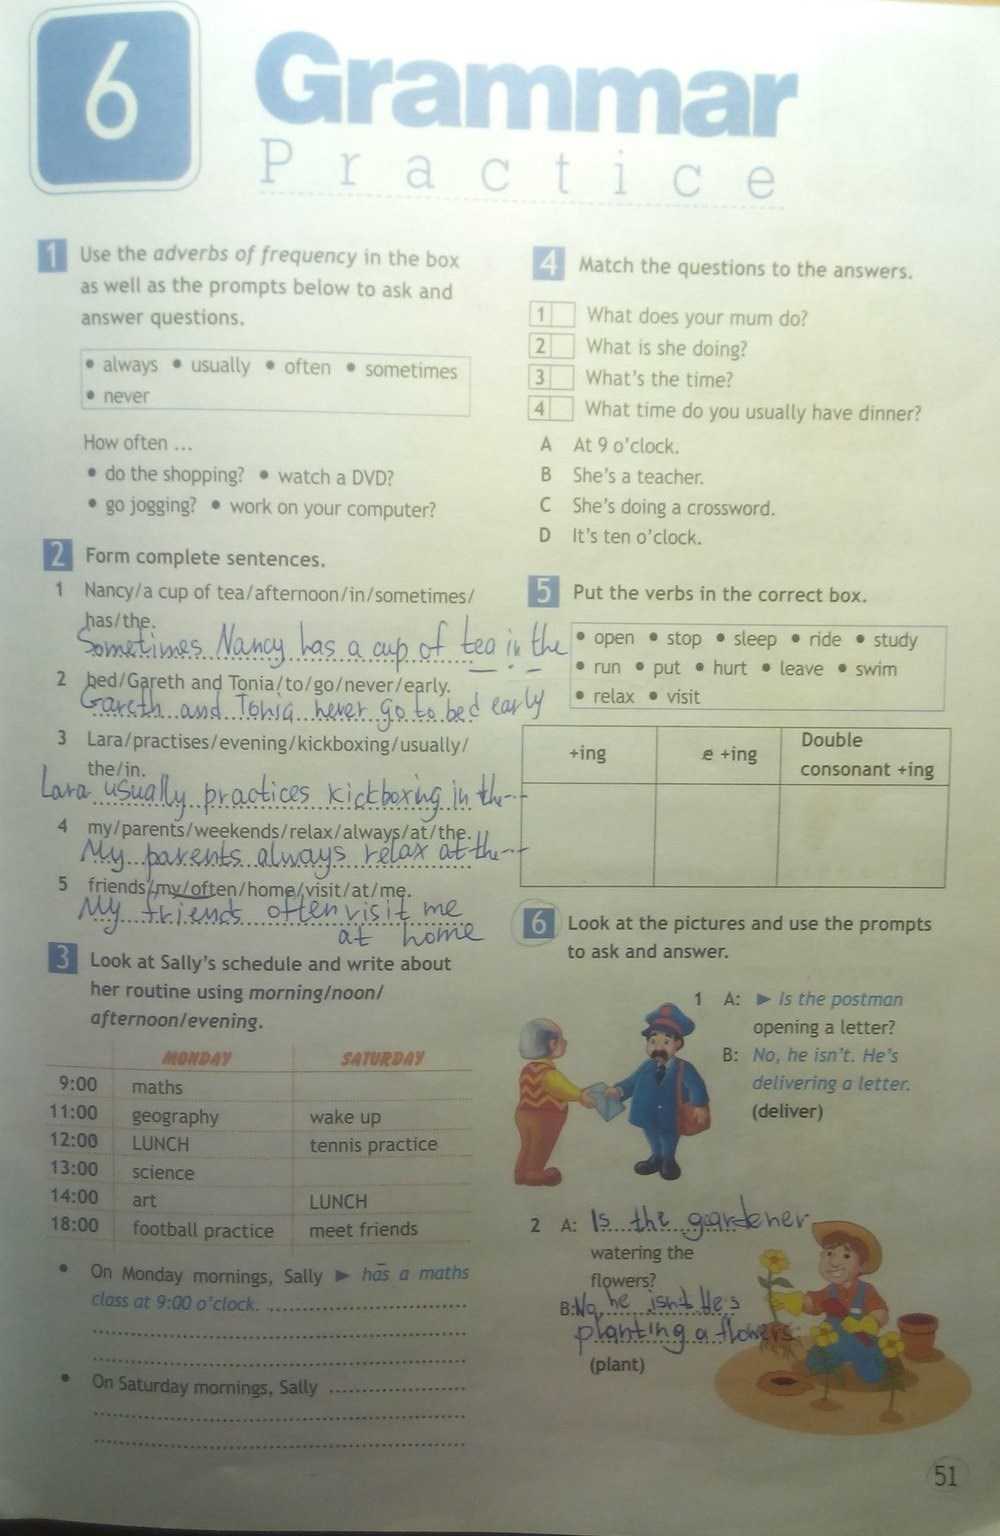 6
Grammar
Practice
1 Use the adverbs of frequency in the box
as well as the prompts below to ask and
answer questions.
• always • usually • often • sometimes
• never
How often ...
• do the shopping? • watch a DVD?
• go jogging? • work on your computer?
2 Form complete sentences.
1 Nancy/a cup of tea/afternoon/in/sometimes/
has/the.
Sometimes Nancy has a cup of tea in the
2 bed/Gareth and Tonia/to/go/never/early.
Gareth and Tonia never go to bed early
3 Lara/practises/evening/kickboxing/usually/
the/in.
Lara usually practices kickboxing in the---
4 my/parents/weekends/relax/always/at/the.
My parents always relax at the---
5 friends/my/often/home/visit/at/me.
My friends often visit me
at home
3 Look at Sally's schedule and write about
her routine using morning/noon/
afternoon/evening.
MONDAY SATURDAY
9:00 maths
11:00 geography wake up
12:00 LUNCH tennis practice
13:00 science
14:00 art LUNCH
18:00 football practice meet friends
• On Monday mornings, Sally ► has a maths
class at 9:00 o'clock.
• On Saturday mornings, Sally
4 Match the questions to the answers.
1 What does your mum do?
2 What is she doing?
3 What's the time?
4 What time do you usually have dinner?
A At 9 o'clock.
B She's a teacher.
C She's doing a crossword.
D It's ten o'clock.
5 Put the verbs in the correct box.
• open • stop • sleep • ride • study
• run • put • hurt • leave • swim
• relax • visit
+ing e +ing Double
consonant +ing
6 Look at the pictures and use the prompts
to ask and answer.
1 A: ► Is the postman
opening a letter?
B: No, he isn't. He's
delivering a letter.
(deliver)
2 A: Is the gardener
watering the
flowers?
B: No he isn't He's
planting a flowers
(plant)
51